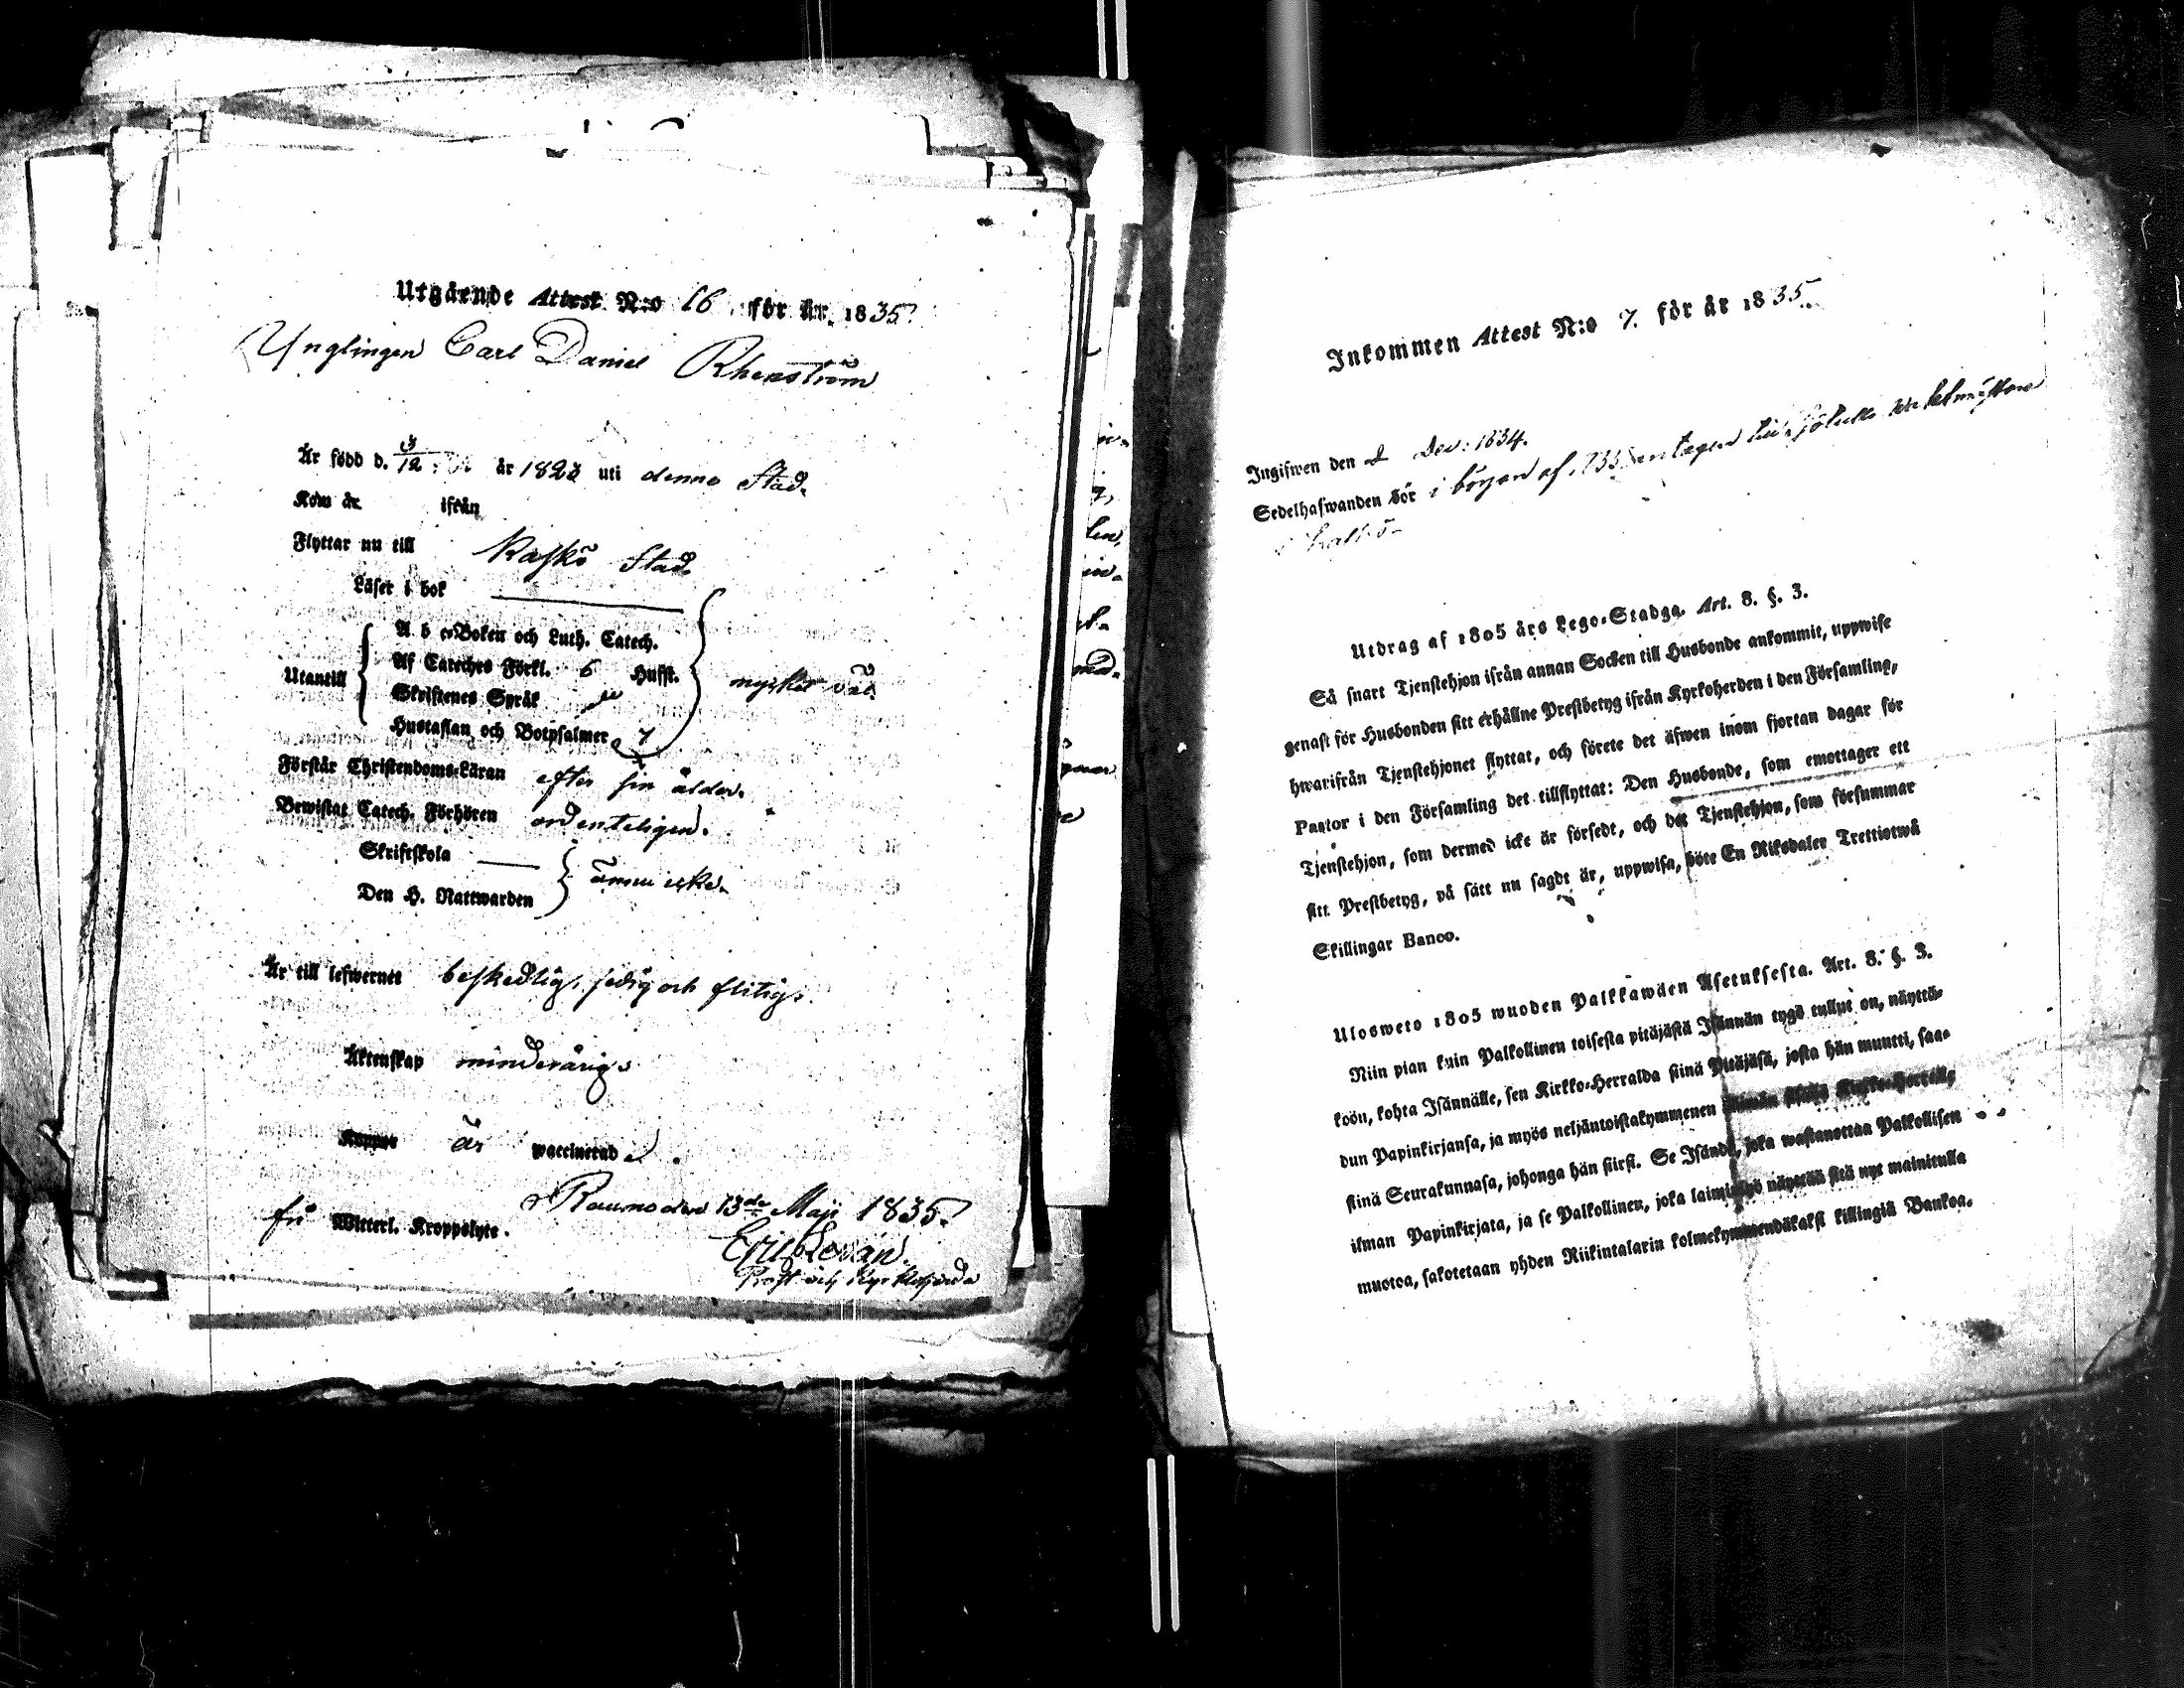 Utgående Attest N:o 16 för år 1835.
Ynglingen Carl Daniel Rhenström
Är född d. 3/12 år 1823 uti denna Stad.
Kom år ifrån
Flyttar nu till Kaskö Stad.
Läser i bok
A b c-Boken och Luth. Catech.
Af Cateches Förkl. 6 Hufst.
Utantill mycket väl.
Skriftenes Språk
Hustaflan och Botpsalmer 7
Förstår Christendoms-Läran efter sin ålder.
Bewistat Catech. Förhören ordenteligen.
Skriftskola
Den H. Nattwarden ännu icke.
Är till lefwernet beskedlig, sedig och flitig.
Äktenskap minderårig.
Koppor är waccinerad.
Raumo den 13de Maji 1835.
fri Witterl. Kroppslyte.
Eric Levan.
Prost och Kyrkoherde
Inkommen Attest N:o 7. för år 1835.
Ingifwen den 2 Dec: 1834.
Sedelhafwanden bör i början af 1835 antagen
Utdrag af 1805 års Lego-Stadga. Art. 8. §. 3.
Så snart Tjenstehjon ifrån annan Socken till Husbonde ankommit, uppwise
genast för Husbonden sitt erhållne Prestbetyg ifrån Kyrkoherden i den Församling,
hwarifrån Tjenstehjonet flyttat, och förete det äfwen inom fjortan dagar för
Pastor i den Församling det tillflyttat: Den Husbonde, som emottager ett
Tjenstehjon, som dermed icke är försedt, och det Tjenstehjon, som försummar
sitt Prestbetyg, på sätt nu sagdt är, uppwisa, böte En Riksdaler Trettiotwå
Skillingar Banco.
Ulosweto 1805 wuoden Palkkawäen Asetuksesta. Art. 8. §. 3.
Niin pian kuin Palkollinen toisesta pitäjästä Isännän tygö tullut on, näyttä-
köön, kohta Isännälle, sen Kirkko-Herralda siinä Pitäjäsä, josta hän muutti, saa-
dun Papinkirjansa, ja myös neljäntoistakymmenen Kirkko-Herralle
siinä Seurakunnasa, johonga hän siirsi. Se Isändä, joka wastanottaa Palkollisen
ilman Papinkirjata, ja se Palkollinen, joka laiminlyö näyttää sitä nyt mainitulla
muotoa, sakotetaan yhden Riikintalarin kolmekymmendäkaksi killingiä Bankoa.